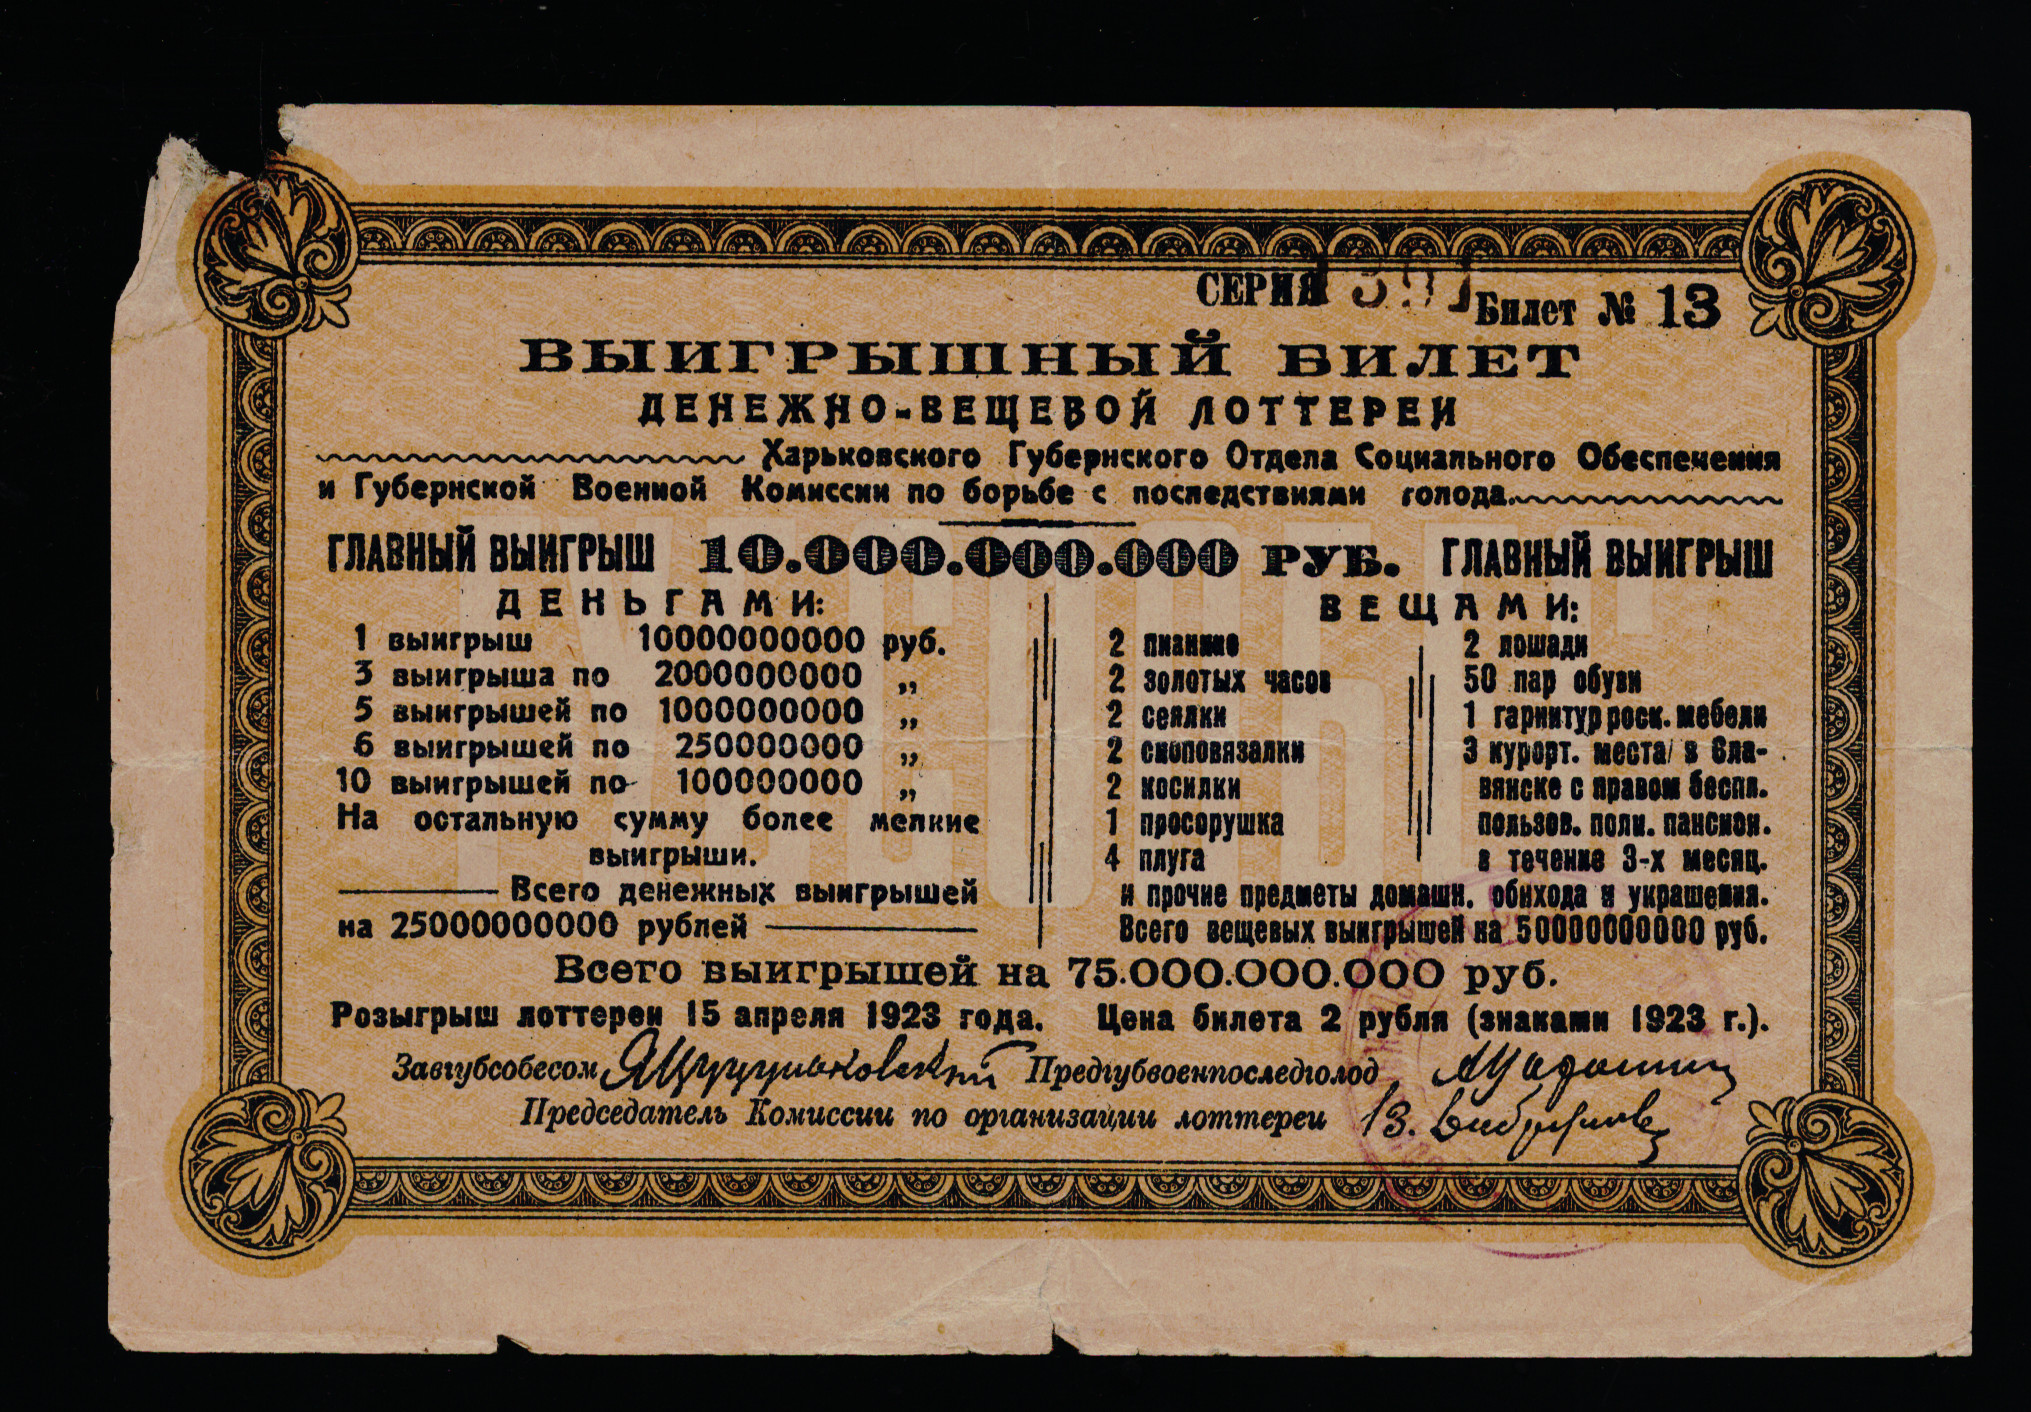 СЕРИЯ Билет № 13
ВЫИГРЫШНЫЙ БИЛЕТ
ДЕНЕЖНО-ВЕЩЕВОЙ ЛОТТЕРЕИ
Харьковского Губернского Отдела Социального Обеспечения
и Губернской Военной Комиссии по борьбе с последствиями голода.
ГЛАВНЫЙ ВЫИГРЫШ 10.000.000.000 РУБ. ГЛАВНЫЙ ВЫИГРЫШ
ДЕНЬГАМИ:
1 выигрыш 10000000000 руб.
3 выигрыша по 2000000000 „
5 выигрышей по 1000000000 „
6 выигрышей по 250000000 „
10 выигрышей по 100000000 „
На остальную сумму более мелкие
выигрыши.
Всего денежных выигрышей
на 25000000000 рублей
ВЕЩАМИ:
2 пианино
2 золотых часов
2 сеялки
2 сноповязалки
2 косилки
1 просорушка
4 плуга
2 лошади
50 пар обуви
1 гарнитур роск. мебели
3 курорт. места в Сла-
вянске с правом беспл.
пользов. полн. пансион.
в течение 3-х месяц.
и прочие предметы домашн. обихода и украшения.
Всего вещевых выигрышей на 50000000000 руб.
Всего выигрышей на 75.000.000.000 руб.
Розыгрыш лоттереи 15 апреля 1923 года. Цена билета 2 рубля (знаками 1923 г.).
Завгубсобесом Предгубвоенпоследголод
Председатель Комиссии по организации лоттереи